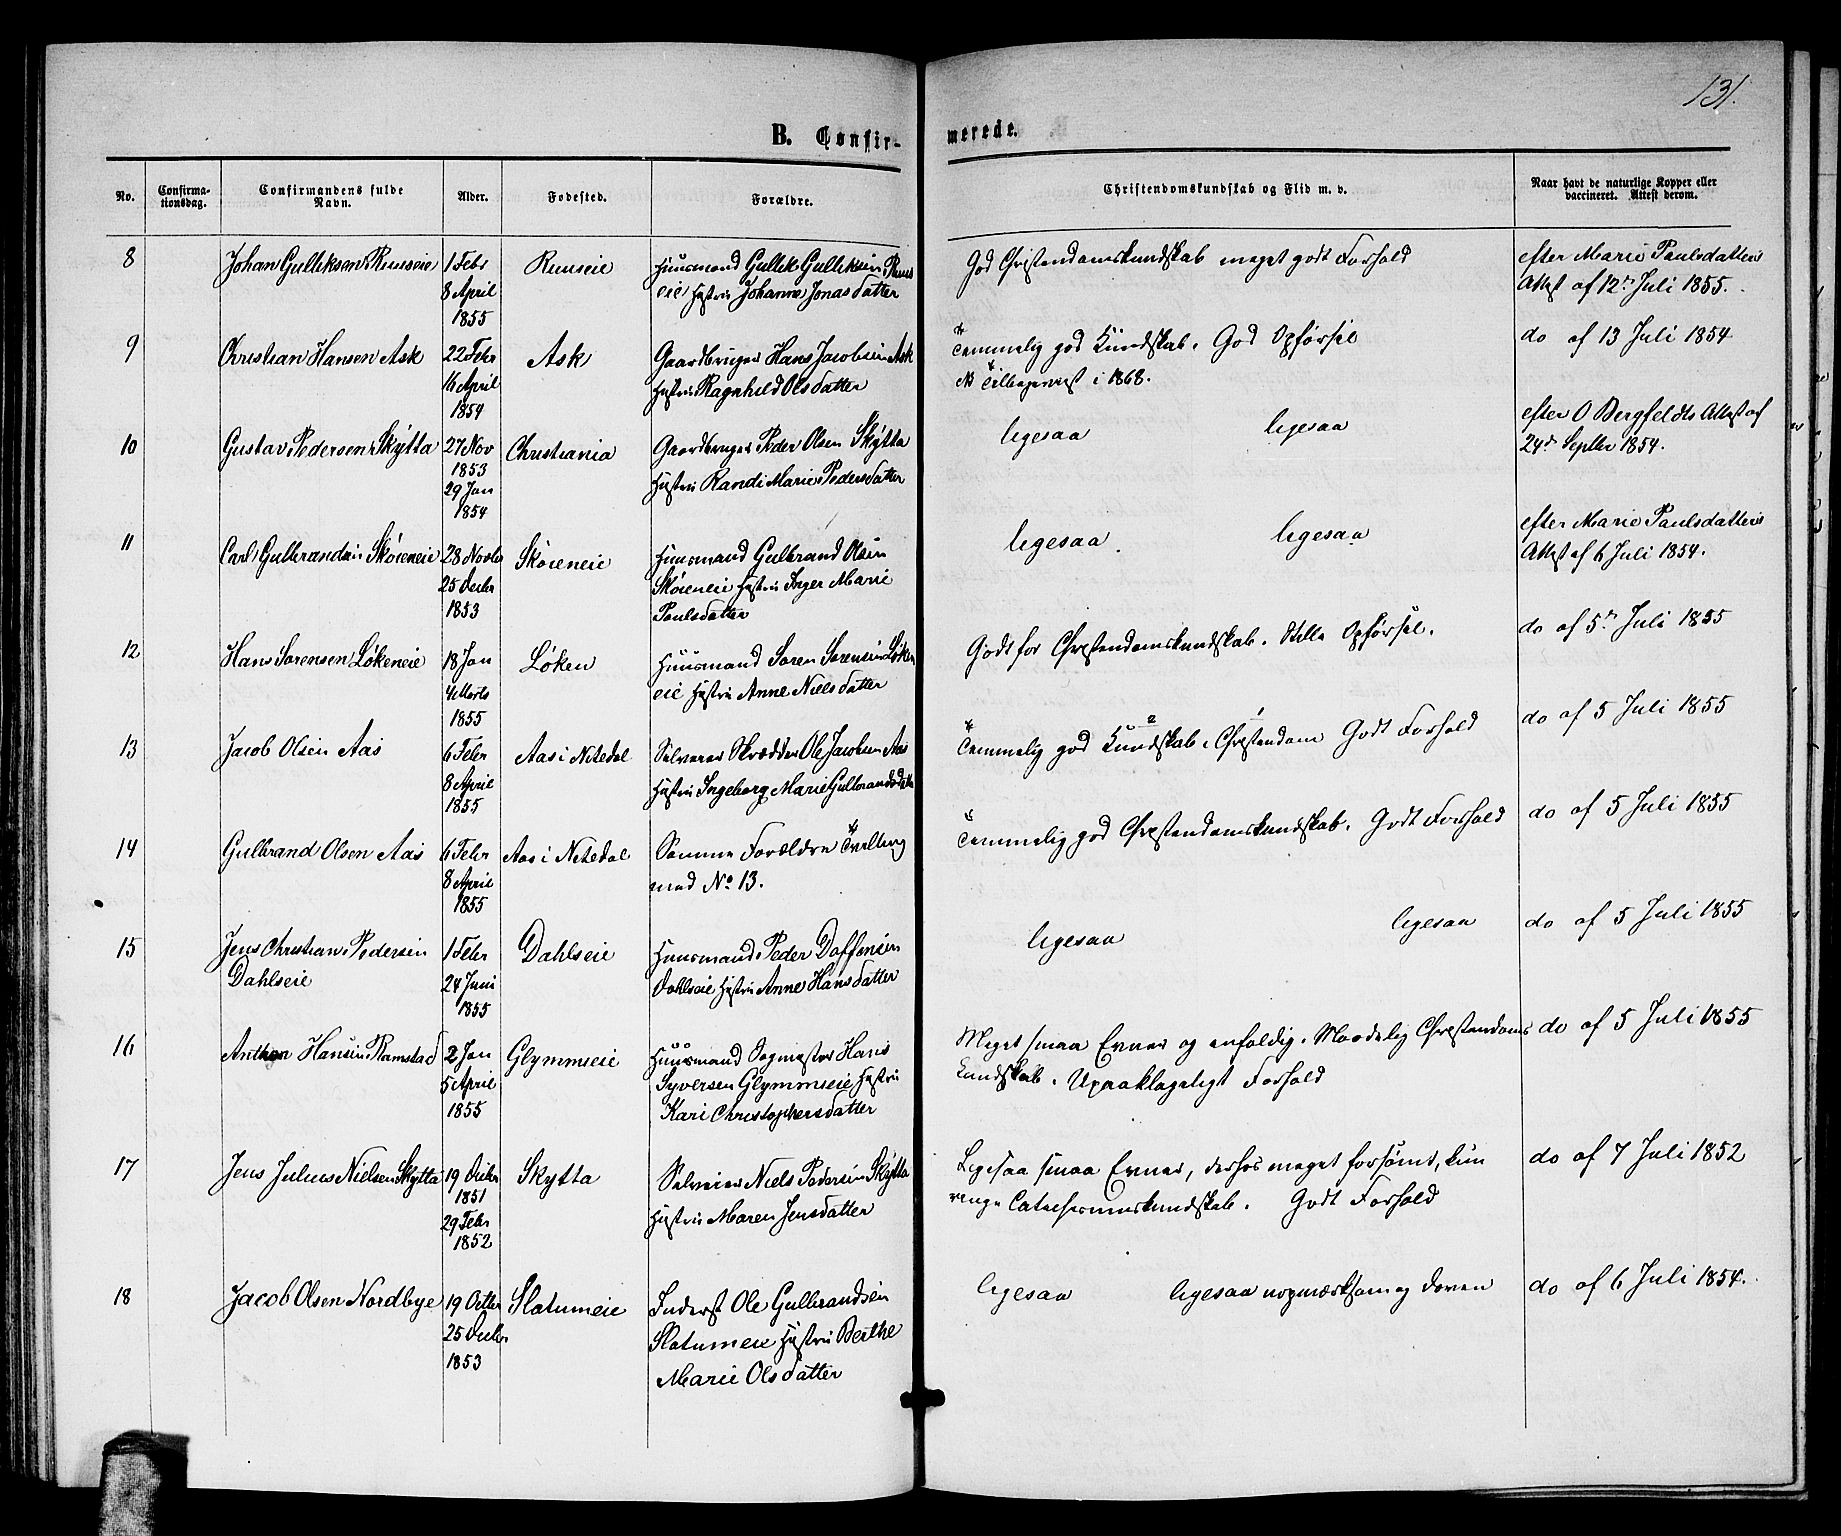 131.
B. Confir-
merede.
No.
Confirma-
tionsdag.
Confirmandens fulde
Navn.
Alder.
Fødested.
Forældre.
Christendomskundskab og Flid m. v.
Naar havt de naturlige Kopper eller
vaccineret. Attest derom.
8
Johan Gulliksen Ruuseie
1 Febr
8 April
1855
Ruuseie
Huusmand Gullik Gulliksen Ruus
eie Hustru Johanne Jonasdatter
God Christendomskundskab meget godt Forhold
efter Marie Paulsdatters
Attest af 12te Juli 1855.
9
Christian Hansen Ask
22 Febr
16 April
1854
Ask
Gaardbruger Hans Jacobsen Ask
Hustru Ragnhild Olsdatter
Temmelig god Kundskab. God Opførsel
Tilbageviist i 1868.
do af 13 Juli 1854
10
Gustav Pedersen Skytta
27 Nov
1853
29 Jan
1854
Christiania
Gaardbruger Peder Olsen Skytta
Hustru Randi Marie Pedersdatter
ligesaa ligesaa
efter O Bergfeldts Attest af
24de Septbr 1854.
11
Carl Gulbrandsen Skøieneie
28 Novbr
25 Decbr
1853
Skøieneie
Huusmand Gulbrand Olsen
Skøieneie Hustru Inger Marie
Paulsdatter
ligesaa ligesaa
efter Marie Paulsdatters
Attest af 6 Juli 1854.
12
Hans Sørensen Løkeneie
18 Jan
4 Marts
1855
Løken
Huusmand Søren Sørensen Løken
eie Hustru Anne Nielsdatter
Godt for Christendomskundskab. Stille Opførsel.
do af 5te Juli 1855
13
Jacob Olsen Aas
6 Febr
8 April
1855
Aas i Nitedal
Selveier Skrædder Ole Jacobsen Aas
Hustru Ingeborg Marie Gulbrandsdatter
Temmelig god Kundskab i Christendom Godt Forhold
do af 5 Juli 1855
14
Gulbrand Olsen Aas
6 Febr
8 April
1855
Aas i Nitedal
Samme Forældre Tvilling
med No 13.
Temmelig god Christendomskundskab. Godt Forhold
do af 5 Juli 1855
15
Jens Christian Pedersen
Dahlseie
1 Febr
24 Juni
1855
Dahlseie
Huusmand Peder Daffinsen
Dahlseie Hustru Anne Hansdatter
ligesaa ligesaa
do af 5 Juli 1855
16
Anthon Hansen Ramstad
2 Jan
5 April
1855
Glymmseie
Huusmand Sagmester Hans
Syversen Glymmseie Hustru
Kari Christophersdatter
Meget smaa Evner og enfoldig. Maadelig Christendoms
kundskab. Upaaklageligt Forhold
do af 5 Juli 1855
17
Jens Julius Nielsen Skytta
19 Decbr
1851
29 Febr
1852
Skytta
Selveier Niels Pedersen Skytta
Hustru Maren Jensdatter
Ligesaa smaa Evner, derhos meget forsømt, kun
ringe Catechismuskundskab. Godt Forhold
do af 7 Juli 1852
18
Jacob Olsen Nordbye
19 Octbr
25 Decbr
1853
Slatumeie
Inderst Ole Gulbrandsen
Slatumeie Hustru Berthe
Marie Olsdatter
ligesaa ligesaa uopmærksom og doven
do af 6 Juli 1854.